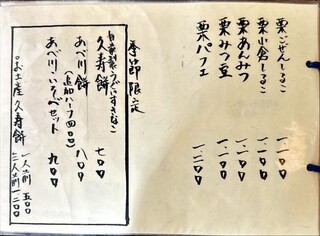 栗ごぜんしるこ 一一〇〇
栗小倉しるこ 一一〇〇
栗あんみつ 一一〇〇
栗みつ豆 一一〇〇
栗パフェ 一二〇〇
季節限定
自家製・うぐいすきなこ
久寿餅 七〇〇
あべ川餅 八〇〇
(追加ハーフ四〇〇)
あべ川・いそべセット 九〇〇
お土産久寿餅 一人前 五〇〇
二人前 一二〇〇